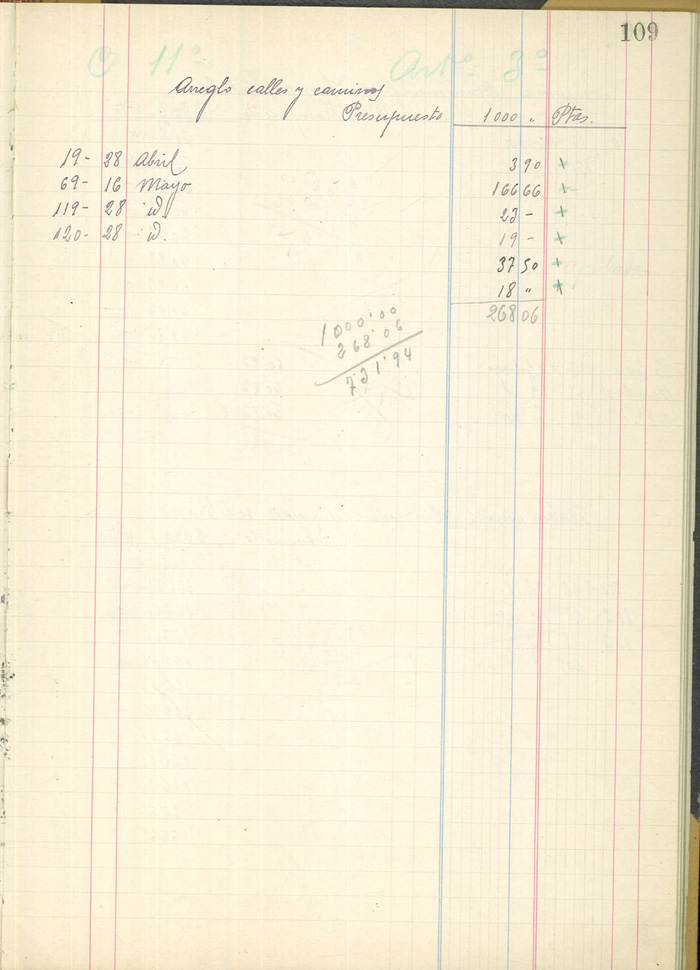 109
C 11º Artº 3º
Arreglo calles y caminos
Presupuesto 1000 " Ptas.
19- 28 Abril 3 90 +
69- 16 Mayo 166 66 +
119- 28 id. 23 - +
120- 28 id. 19 - +
37 50 +
18 " +
268 06
1000'00
268'06
731'94